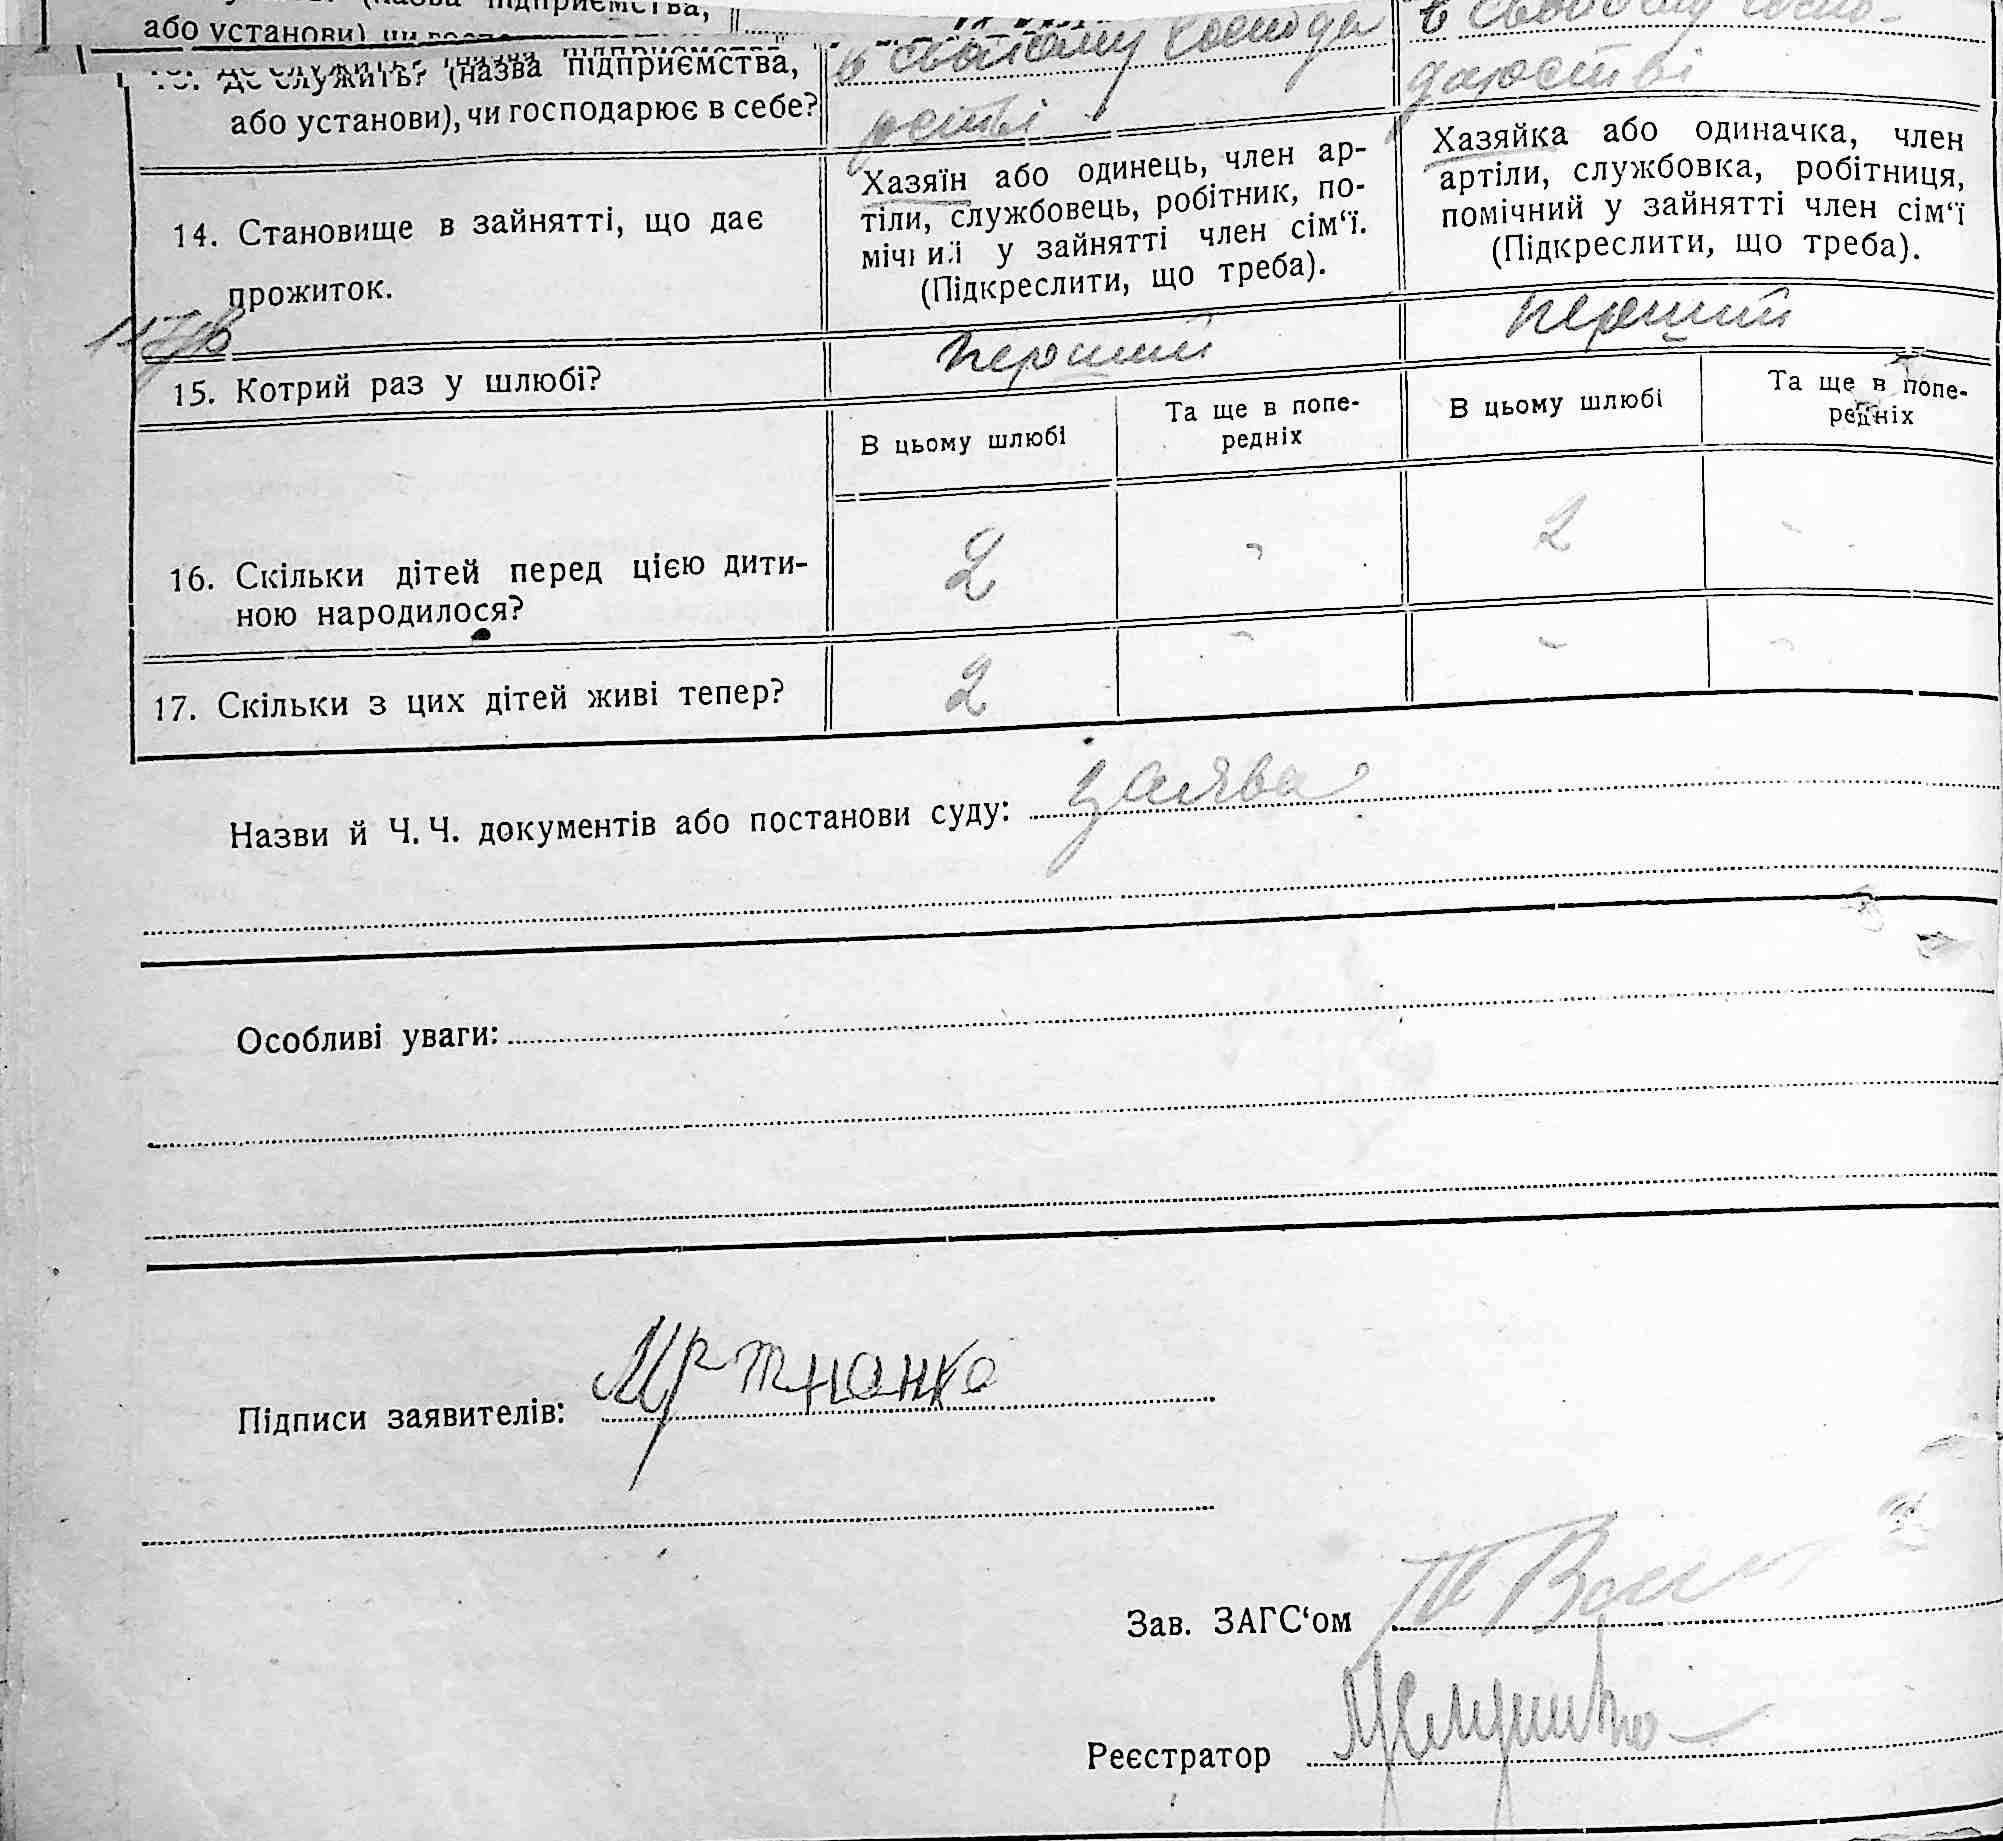 або установи)
13. Де служить? (назва підприємства,
або установи), чи господарює в себе?
в своїому господа
рстві
в своєому госпо-
дарстві
14. Становище в зайнятті, що дає
прожиток.
Хазяїн або одинець, член ар-
тіли, службовець, робітник, по-
мічний у зайнятті член сім‘ї.
(Підкреслити, що треба).
Хазяйка або одиначка, член
артіли, службовка, робітниця,
помічний у зайнятті член сім‘ї
(Підкреслити, що треба).
15. Котрий раз у шлюбі?
перший
перший
В цьому шлюбі
Та ще в попе-
редніх
В цьому шлюбі
Та ще в попе-
редніх
16. Скільки дітей перед цією дити-
ною народилося?
2 - 2 -
17. Скільки з цих дітей живі тепер?
2 - - -
Назви й Ч. Ч. документів або постанови суду: заява
Особливі уваги:
Підписи заявителів:
Зав. ЗАГС‘ом
Реєстратор